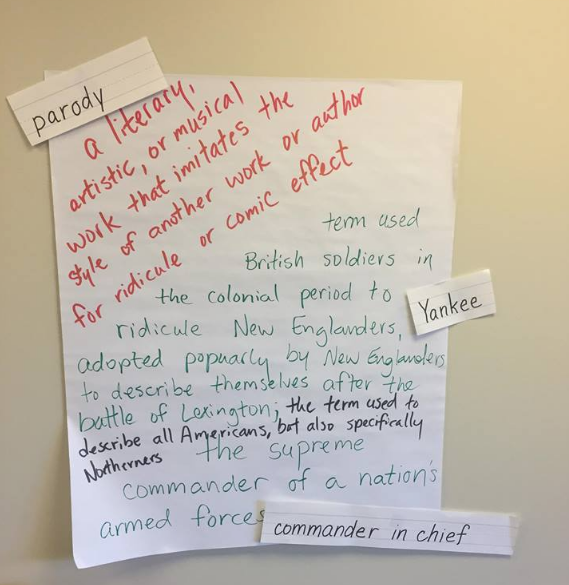 parody
a literary,
artistic, or musical
work that imitates the
style of another work or author
for ridicule or comic effect
term used
British soldiers in
the colonial period to
ridicule New Englanders,
adopted popuarly by New Englanders
to describe themselves after the
battle of Lexington; the term used to
describe all Americans, but also specifically
Northerners
Yankee
the supreme
commander of a nation's
armed forces
commander in chief